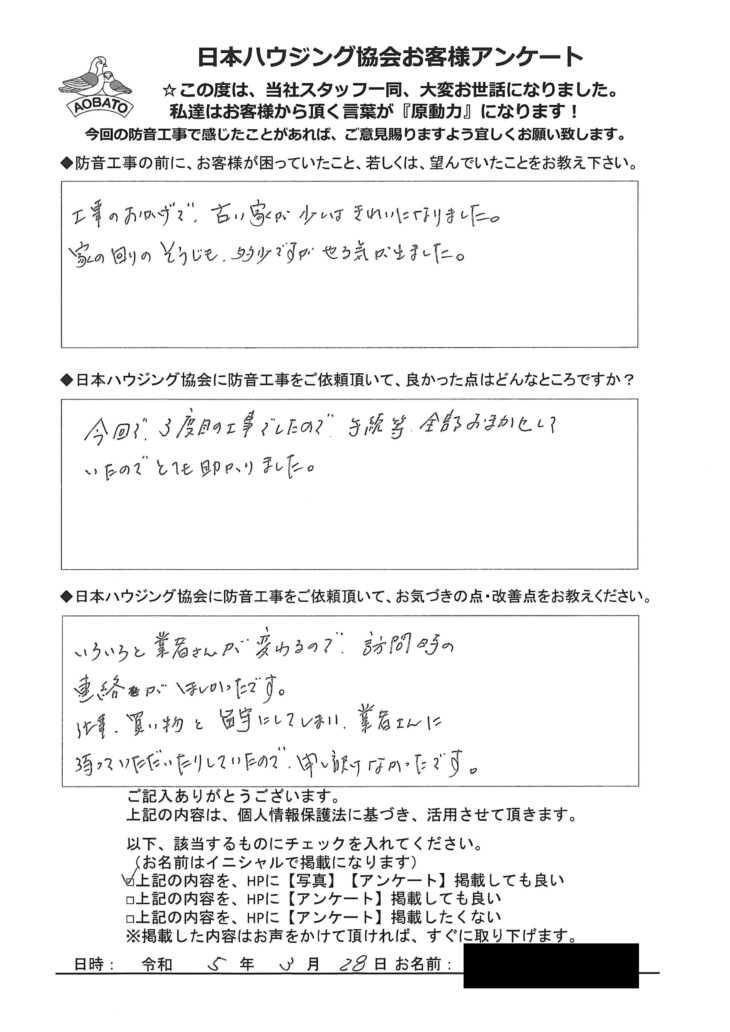 日本ハウジング協会お客様アンケート
AOBATO
☆この度は、当社スタッフ一同、大変お世話になりました。
私達はお客様から頂く言葉が『原動力』になります！
今回の防音工事で感じたことがあれば、ご意見賜りますよう宜しくお願い致します。
◆防音工事の前に、お客様が困っていたこと、若しくは、望んでいたことをお教え下さい。
工事のおかげで、古い家が少しはきれいになりました。
家の回りのそうじも、多少ですがやる気が出ました。
◆日本ハウジング協会に防音工事をご依頼頂いて、良かった点はどんなところですか？
今回で、3度目の工事でしたので、手続等、全部おまかせして
いたのでとても助かりました。
◆日本ハウジング協会に防音工事をご依頼頂いて、お気づきの点・改善点をお教えください。
いろいろと業者さんが変わるので、訪問時の
連絡がほしかったです。
仕事、買い物と留守にしてしまい、業者さんに
待っていただいたりしていたので、申し訳けなかったです。
ご記入ありがとうございます。
上記の内容は、個人情報保護法に基づき、活用させて頂きます。
以下、該当するものにチェックを入れてください。
（お名前はイニシャルで掲載になります）
☑上記の内容を、HPに【写真】【アンケート】掲載しても良い
□上記の内容を、HPに【アンケート】掲載しても良い
□上記の内容を、HPに【アンケート】掲載したくない
※掲載した内容はお声をかけて頂ければ、すぐに取り下げます。
日時： 令和 5 年 3 月 28 日 お名前：